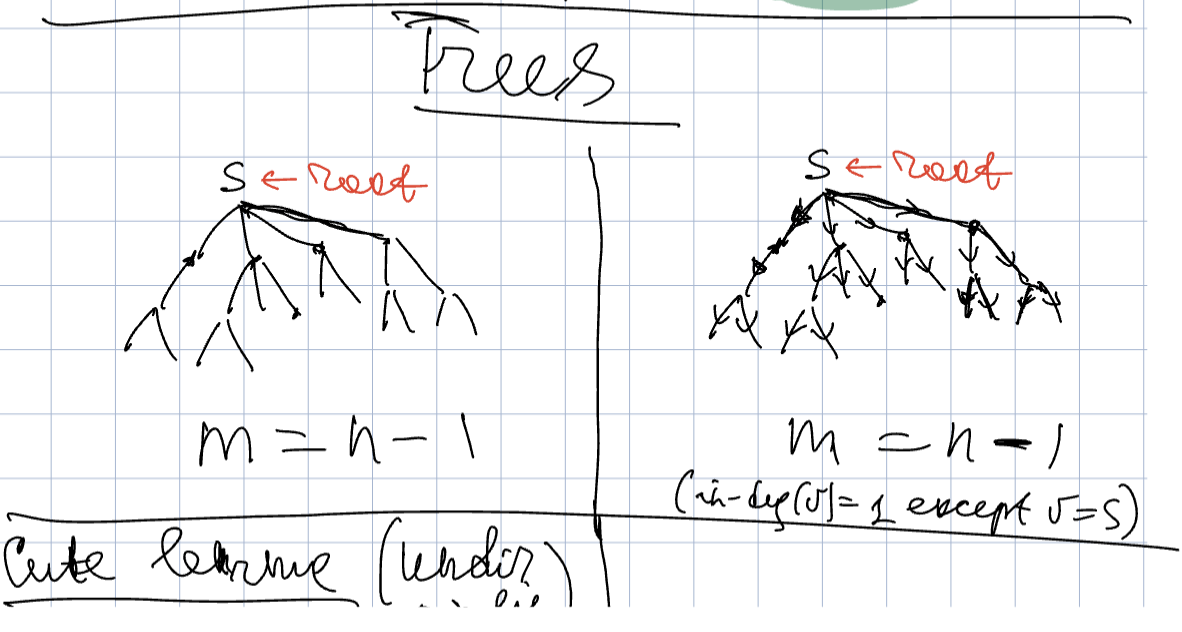 Trees
S ← root
S ← root
m = n - 1
m = n - 1
(in-deg(v) = 1 except v = s)
Cute lemma (undir